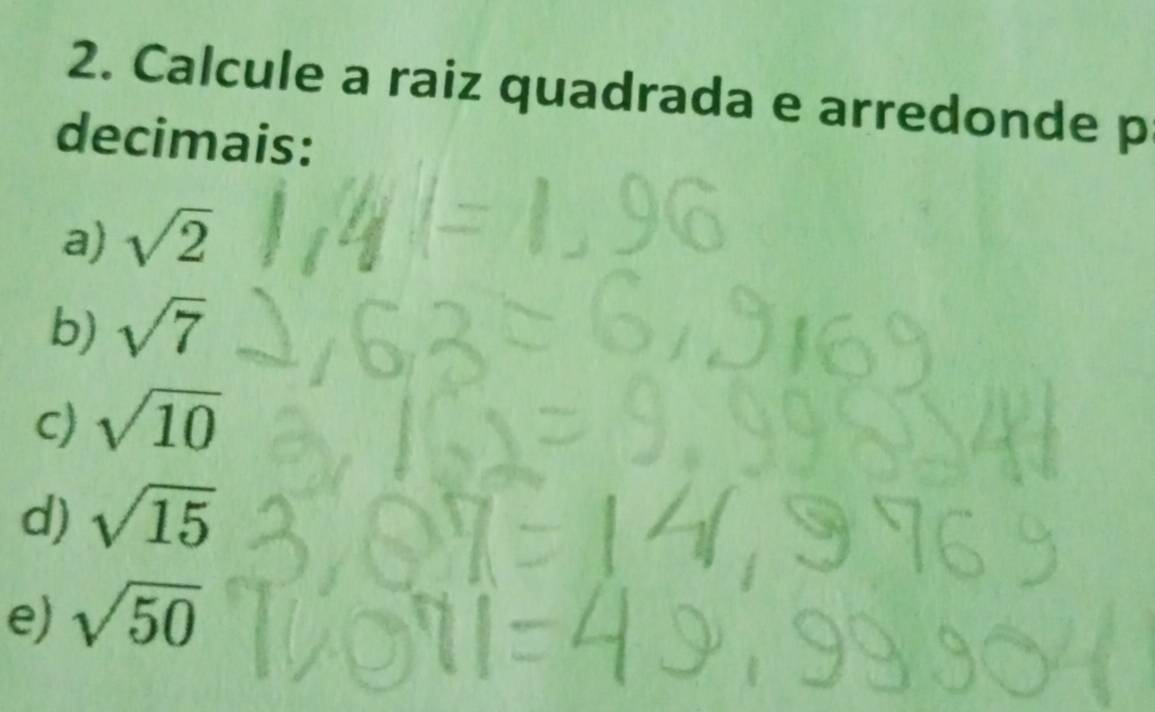 2. Calcule a raiz quadrada e arredonde
decimais:
a) √2 1,41=1,96
b) √7 2,63=6,9169
c) √10 3,162=9,998244
d) √15 3,87=14,9769
e) √50 7,071=49,99904